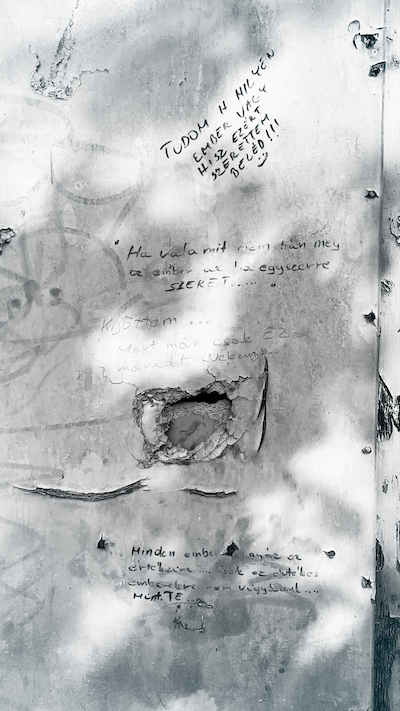 TUDOM H MILYEN
EMBER VAGY
HISZ EZÉRT
SZERETTEM
BELÉD!!!
Ha valamit nem bán meg
az ember az ha egyszerre
SZERET.....
Kijöttem ...
Mert már csak EZ
maradt nekem...
Minden ember az
értékeire .... csak az értékes
emberekre nem vigyázunk....
MINT TE...